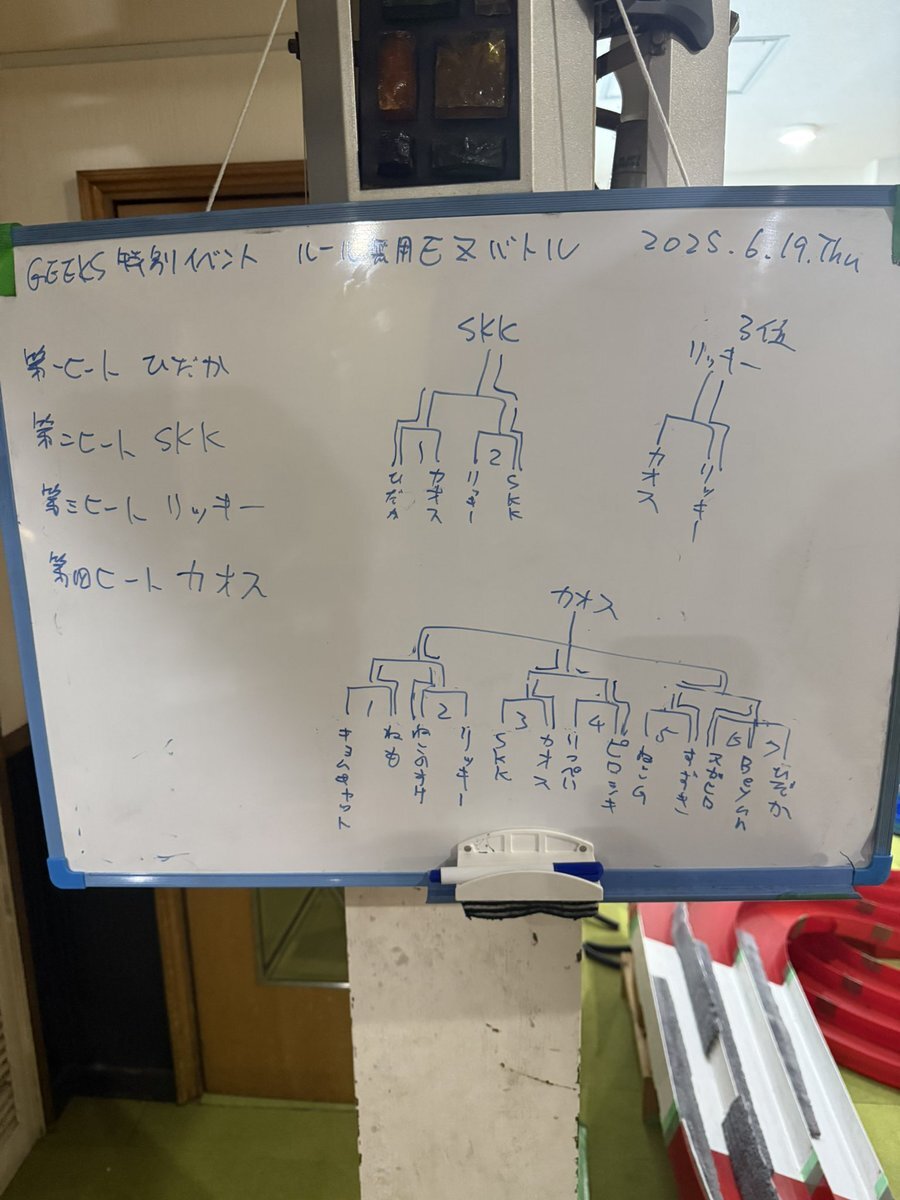 GEEKS 特別イベント ルール無用EZバトル 2025.6.19.Thu
第一ヒート ひだか
第二ヒート SKK
第三ヒート リッキー
第四ヒート カオス
SKK
1 2
ひだか カオス リッキー SKK
3位
リッキー
カオス リッキー
カオス
1 2 3 4 5 6
キョムキャット ねも ねこのすけ リッキー SKK カオス りっぺい ヒロユキ すずき スガヒロ ひだか